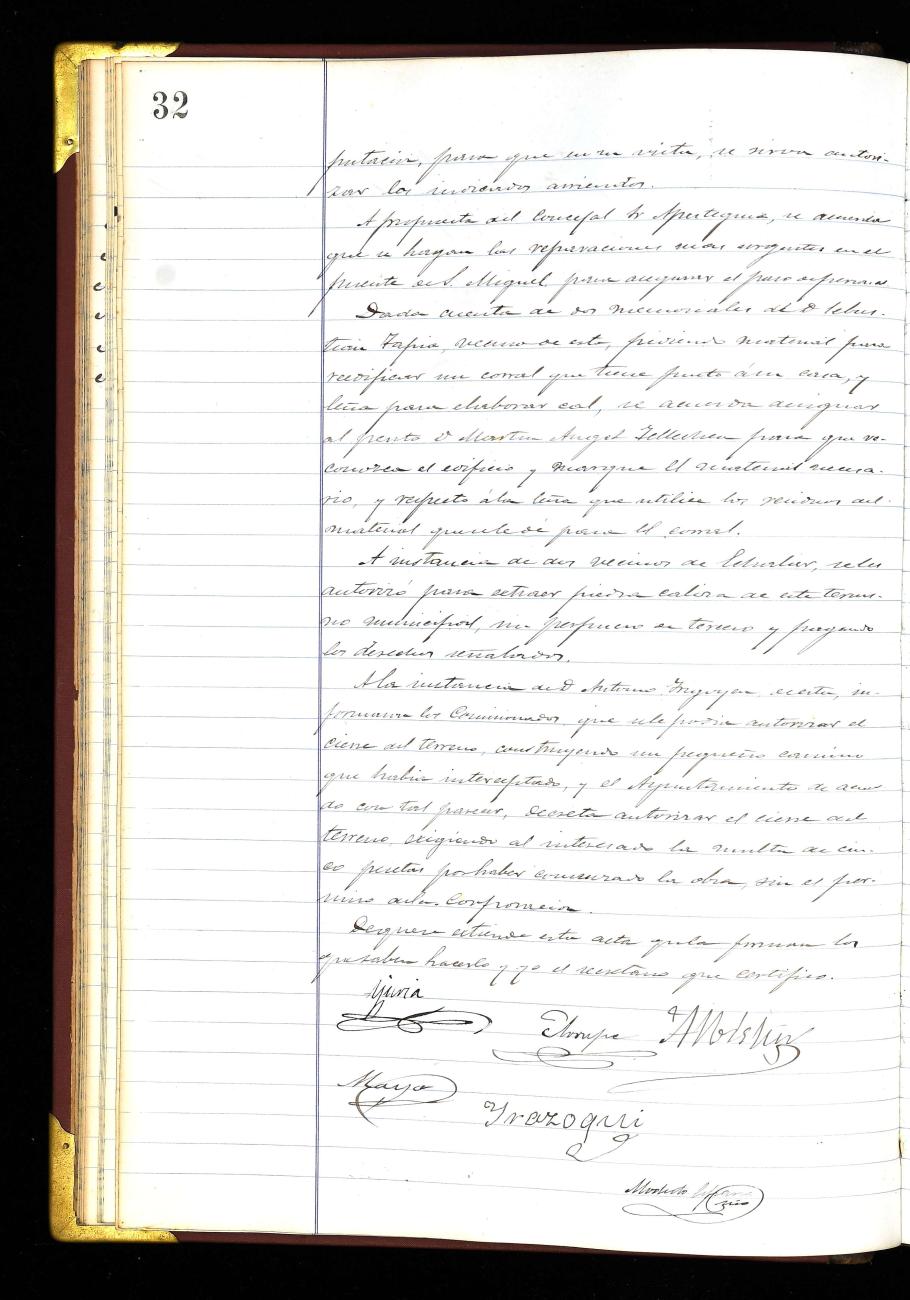 32
putación, para que en su vista, se sirva autori-
zar los indicados arriendos.
A propuesta del Concejal Sr Apesteguia, se acuerda
que se hagan las reparaciones mas urgentes en el
puente de S. Miguel para asegurar el paso de personas
Dada cuenta de dos memoriales de D Sebas-
tian Tapia, vecino de esta, pidiendo material para
reedificar un corral que tiene junto á su casa, y
leña para elaborar cal, se acuerda designar
al perito D Martin Angel Tellechea para que re-
conozca el edificio y marque el material necesa-
rio, y respecto á la leña que utilice los residuos del
material que se le dé para el corral.
A instancia de dos vecinos de Echalar, se les
autorizó para extraer piedra caliza de este termi-
no municipal, sin perjuicio de tercero y pagando
los derechos señalados.
A la instancia de D Antonio Irigoyen, de esta, in-
formaron los Comisionados, que se le podia autorizar el
cierre del terreno, construyendo un pequeño camino
que habia interceptado, y el Ayuntamiento de acuer-
do con tal parecer, decreta autorizar el cierre del
terreno, exigiendo al interesado la multa de cin-
co pesetas por haber comenzado la obra, sin el per-
miso de la Corporacion.
De que se extiende esta acta que la firman los
que saben hacerlo y yo el secretario que certifico.
Yuria
Mayo
Yrazoqui
Modesto